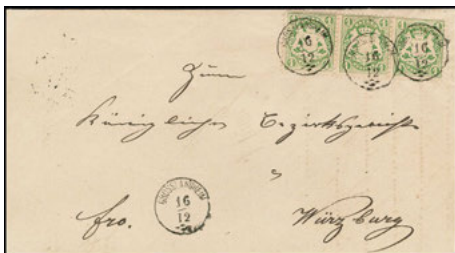 16
12
16
12
16
12
Zum
Königlichen Bezirksgericht
fro.
16
12
Würzburg